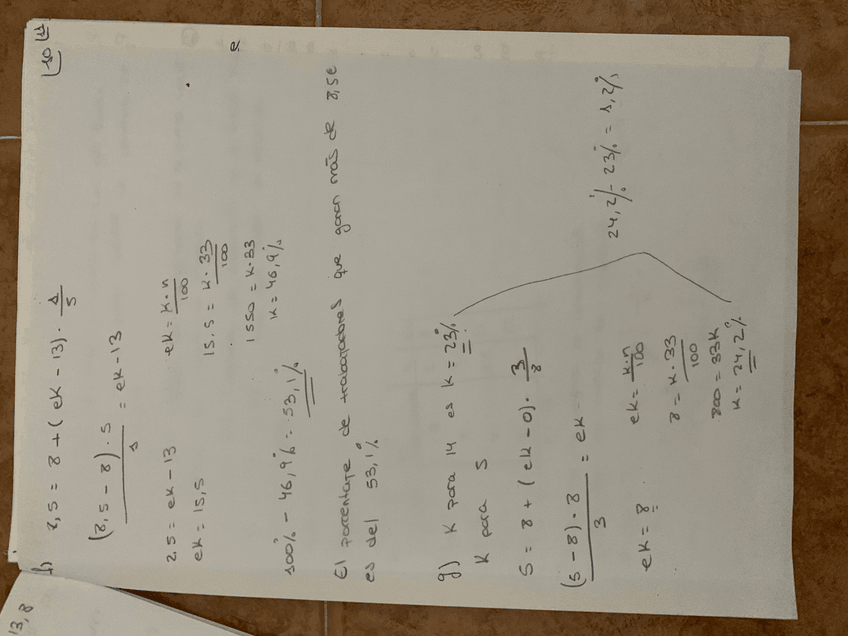 f) 8,5 = 8 + (ek - 13) · 1/5
(8,5 - 8) · 5 / 1 = ek - 13
2,5 = ek - 13
ek = 15,5
ek = k·n/100
15,5 = k · 33/100
1550 = k·33
k = 46,9%
100% - 46,9% = 53,1%
El porcentaje de trabajadores que ganan más de 8,5€
es del 53,1%
g) K para 14 es k = 23%
K para 5
5 = 8 + (ek - 0) · 3/8
(5 - 8) · 8 / 3 = ek
ek = 8
ek = k·n/100
8 = k · 33/100
800 = 33k
k = 24,2%
24,2% - 23% = 1,2%
13,8